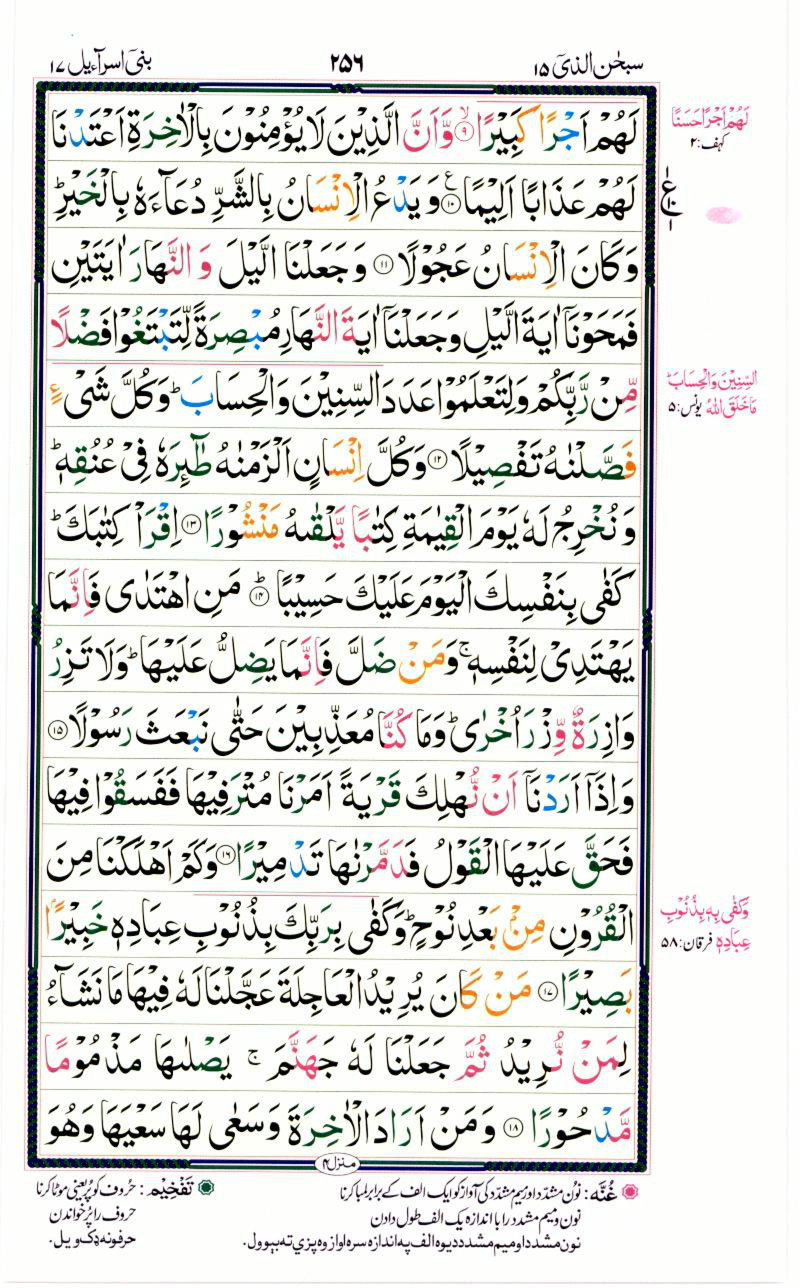 سبحٰن الذیٓ ۱۵
۲۵۶
بنیٓ اسرآءیل ۱۷
لَهُمْ اَجْرًا كَبِيْرًا ۙ‏﴿۹﴾ وَّاَنَّ الَّذِيْنَ لَا يُؤْمِنُوْنَ بِالْاٰخِرَةِ اَعْتَدْنَا
لَهُمْ عَذَابًا اَلِيْمًا ﴿۱۰﴾ ع وَيَدْعُ الْاِنْسَانُ بِالشَّرِّ دُعَآءَهٗ بِالْخَيْرِ ؕ
وَكَانَ الْاِنْسَانُ عَجُوْلًا ﴿۱۱﴾ وَجَعَلْنَا الَّيْلَ وَالنَّهَارَ اٰيَتَيْنِ
فَمَحَوْنَآ اٰيَةَ الَّيْلِ وَجَعَلْنَآ اٰيَةَ النَّهَارِ مُبْصِرَةً لِّتَبْتَغُوْا فَضْلًا
مِّنْ رَّبِّكُمْ وَلِتَعْلَمُوْا عَدَدَ السِّنِيْنَ وَالْحِسَابَ ؕ وَكُلَّ شَىْءٍ
فَصَّلْنٰهُ تَفْصِيْلًا ﴿۱۲﴾ وَكُلَّ اِنْسَانٍ اَلْزَمْنٰهُ طٰٓئِرَهٗ فِىْ عُنُقِهٖ ؕ
وَنُخْرِجُ لَهٗ يَوْمَ الْقِيٰمَةِ كِتٰبًا يَّلْقٰىهُ مَنْشُوْرًا ﴿۱۳﴾ اِقْرَاْ كِتٰبَكَ ؕ
كَفٰى بِنَفْسِكَ الْيَوْمَ عَلَيْكَ حَسِيْبًا ؕ ﴿۱۴﴾ مَنِ اهْتَدٰى فَاِنَّمَا
يَهْتَدِىْ لِنَفْسِهٖ ۚ وَمَنْ ضَلَّ فَاِنَّمَا يَضِلُّ عَلَيْهَا ؕ وَلَا تَزِرُ
وَازِرَةٌ وِّزْرَ اُخْرٰى ؕ وَمَا كُنَّا مُعَذِّبِيْنَ حَتّٰى نَبْعَثَ رَسُوْلًا ﴿۱۵﴾
وَاِذَآ اَرَدْنَآ اَنْ نُّهْلِكَ قَرْيَةً اَمَرْنَا مُتْرَفِيْهَا فَفَسَقُوْا فِيْهَا
فَحَقَّ عَلَيْهَا الْقَوْلُ فَدَمَّرْنٰهَا تَدْمِيْرًا ﴿۱۶﴾ وَكَمْ اَهْلَكْنَا مِنَ
الْقُرُوْنِ مِنْۢ بَعْدِ نُوْحٍ ؕ وَكَفٰى بِرَبِّكَ بِذُنُوْبِ عِبَادِهٖ خَبِيْرًۢا
بَصِيْرًا ﴿۱۷﴾ مَنْ كَانَ يُرِيْدُ الْعَاجِلَةَ عَجَّلْنَا لَهٗ فِيْهَا مَا نَشَآءُ
لِمَنْ نُّرِيْدُ ثُمَّ جَعَلْنَا لَهٗ جَهَنَّمَ ۚ يَصْلٰىهَا مَذْمُوْمًا
مَّدْحُوْرًا ﴿۱۸﴾ وَمَنْ اَرَادَ الْاٰخِرَةَ وَسَعٰى لَهَا سَعْيَهَا وَهُوَ
لَهُمْ اَجْرًا حَسَنًا
كهف: ۲
ع
۱۰
۱
السِّنِيْنَ وَالْحِسَابَ ؕ
مَا خَلَقَ اللّٰهُ يونس: ۵
وَكَفٰى بِهٖ بِذُنُوْبِ
عِبَادِهٖ فرقان: ۵۸
منزل۴
غُنَّه: نون مشدّد اور میم مشدّد کی آواز کو ایک الف کے برابر لمبا کرنا
نون و میم مشدد را با اندازہ یک الف طول دادن
نون مشدد او میم مشدد د یوہ الف په اندازہ سره اواز وه پزې ته بېوول.
تَفْخِيْم: حُروف کو پُر یعنی موٹا کرنا
حروف را پُر خواندن
حرفونه ډک ویل.